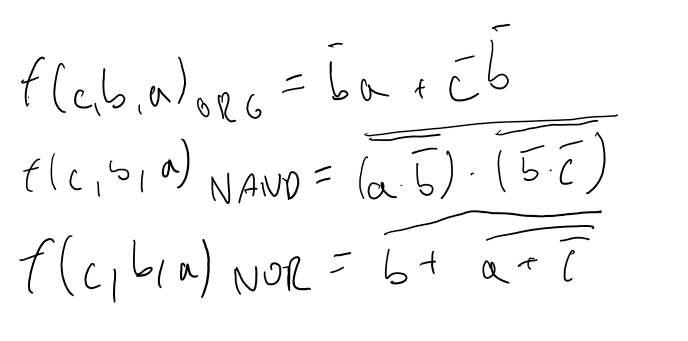 f(c,b,a) ORG = b̅a + c̅b̅
f(c,b,a) NAND = \overline{\overline{(a·b̅)}·\overline{(b̅·c̅)}}
f(c,b,a) NOR = \overline{b + \overline{a + c̅}}